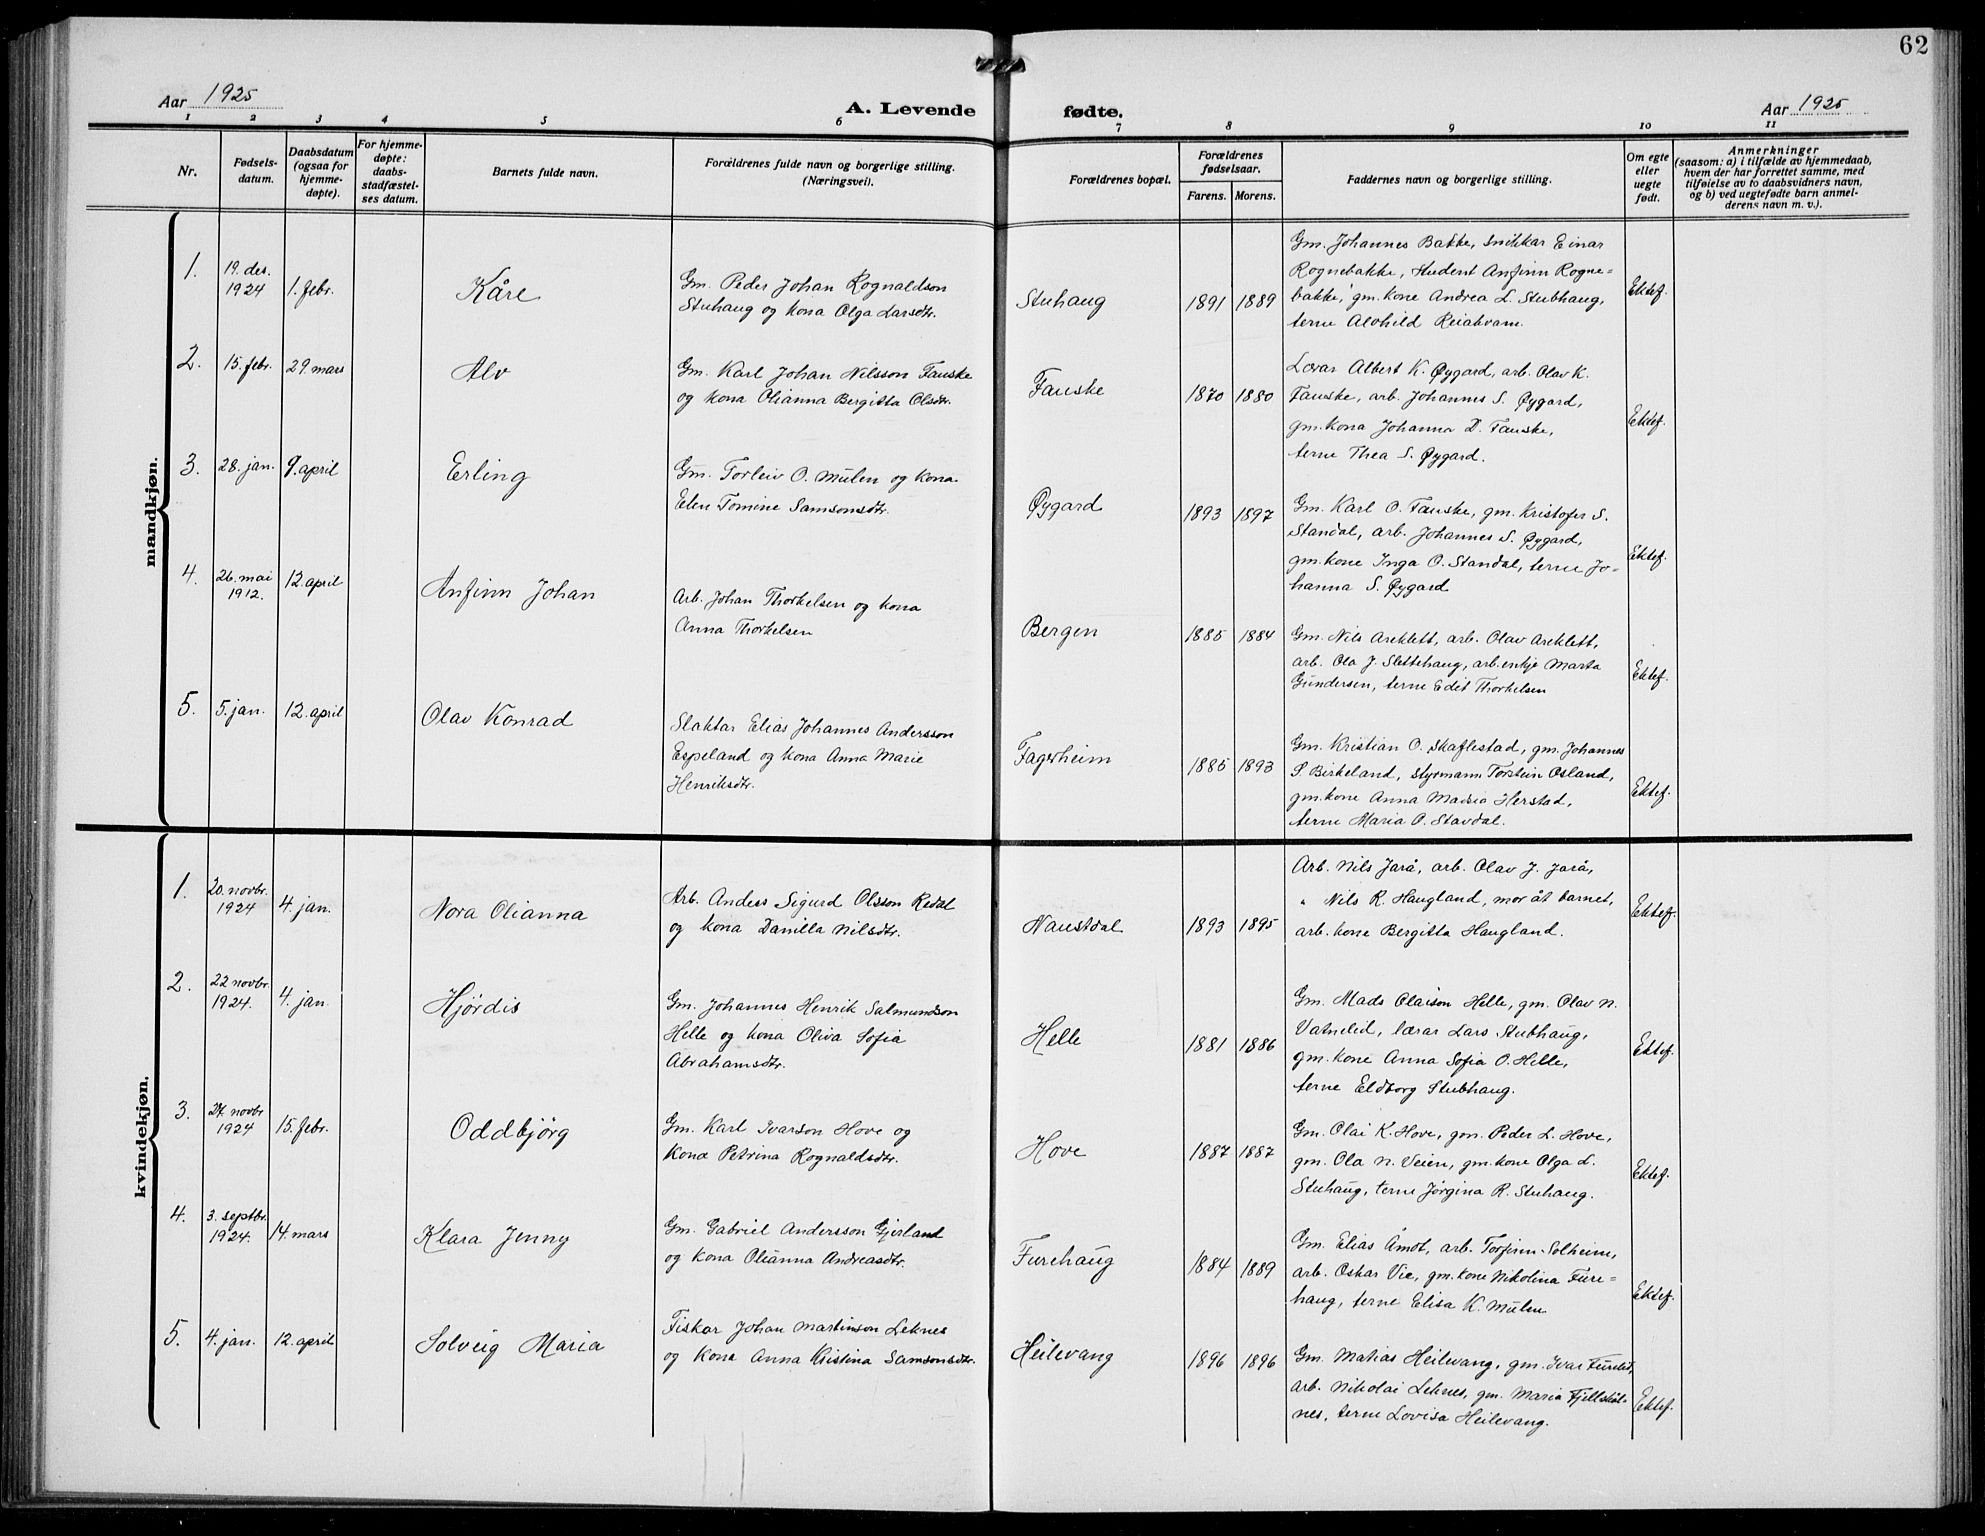 62
Aar 1925
A. Levende
fødte.
Aar 1925
1 2 3 4 5 6 7 8 9 10 11
Nr.
Fødsels-
datum.
Daabsdatum
(ogsaa for
hjemme-
døpte).
For hjemme-
døpte:
daabs-
stadfæstel-
ses datum.
Barnets fulde navn.
Forældrenes fulde navn og borgerlige stilling.
(Næringsvei).
Forældrenes bopæl.
Forældrenes
fødselsaar.
Farens. Morens.
Faddernes navn og borgerlige stilling.
Om egte
eller
uegte
født.
Anmerkninger
(saasom: a) i tilfælde av hjemmedaab,
hvem der har forrettet samme, med
tilføielse av to daabsvidners navn,
og b) ved uegtefødte barn anmel-
derens navn m. v.).
mandkjøn.
1.
19. des.
1924
1. febr.
Kåre
Gm. Peder Johan Rognaldson
Stuhaug og kona Olga Larsdtr.
Stuhaug
1891 1889
Gm. Johannes Bakke, snikkar Einar
Rognebakke, student Anfinn Rogne=
bakke, gm. kone Andrea L. Stubhaug,
terne Alvhild Reiakvam.
Ektef.
2.
15. febr.
29. mars
Alv
Gm. Karl Johan Nilsson Fauske
og kona Olianna Bergitta Olsdtr.
Fauske
1870 1880
Lærar Albert K. Øygard, arb. Olav K.
Fauske, arb. Johannes S. Øygard,
gm. kona Johanna D. Fauske,
terne Thea S. Øygard.
Ektef.
3.
28. jan.
9. april
Erling
Gm. Torleiv O. Mulen og kona
Elen Tomine Samsonsdtr.
Øygard
1893 1897
Gm. Karl O. Fauske, gm. Kristofer S.
Standal, arb. Johannes S. Øygard,
gm. kone Inga O. Standal, terne Jo-
hanna S. Øygard
Ektef.
4.
26. mai
1912.
12. april
Anfinn Johan
Arb. Johan Thorkelsen og kona
Anna Thorkelsen
Bergen
1885 1884
Gm. Nils Areklett, arb. Olav Areklett,
arb. Ola J. Slettehaug, arb. enkje Marta
Gundersen, terne Edit Thorkelsen
Ektef.
5.
5. jan.
12. april
Olav Konrad
Slaktar Elias Johannes Andersson
Espeland og kona Anna Marie
Henriksdtr.
Fagerheim
1885 1893
Gm. Kristian O. Skaflestad, gm. Johannes
S Birkeland, styrmann Torstein Osland,
gm. kone Anna Madsia Herstad,
terne Maria O. Stavdal.
Ektef.
kvindekjøn.
1.
20. novbr.
1924
4. jan.
Nora Olianna
Arb. Anders Sigurd Olsson Redal
og kona Danilla Nilsdtr.
Naustdal
1893 1895
Arb. Nils Jarå, arb. Olav J. Jarå,
" Nils R. Haugland, mor åt barnet,
arb. kone Bergitta Haugland.
Ektef.
2.
22 novbr.
1924.
4. jan.
Hjördis
Gm. Johannes Henrik Salmundson
Helle og kona Oliva Sofia
Abrahamsdtr.
Helle
1881 1886
Gm. Mads Olaison Helle, gm. Olav N.
Vatnelid, lærar Lars Stubhaug,
gm. kone Anna Sofia O. Helle,
terne Eldborg Stubhaug.
Ektef.
3.
24. novbr
1924
15. febr.
Oddbjörg
Gm. Karl Ivarson Hove og
kona Petrina Rognaldsdtr.
Hove
1887 1887
Gm. Olai K. Hove, gm. Peder L. Hove,
gm. Ola N. Veien, gm. kone Olga L.
Stuhaug, terne Jørgina R. Stuhaug.
Ektef.
4.
3. septbr.
1924.
14. mars
Klara Jenny
Gm. Gabriel Andersson Gjerland
og kona Olianna Andreasdtr.
Furehaug
1884 1889
Gm. Elias Åmot, arb. Torfinn Solheim,
arb. Oskar Vie, gm. kone Nikolina Fure=
haug, terne Elisa K. Mulen
Ektef.
5.
4. jan.
12. april
Solveig Maria
Fiskar Johan Martinson Leknes
og kona Anna Kristina Samsonsdtr.
Heilevang
1896 1896
Gm. Matias Heilevang, gm. Ivar Furelid,
arb. Nikolai Leknes, gm. Maria
nes, terne Lovisa Heilevang.
Ektef.